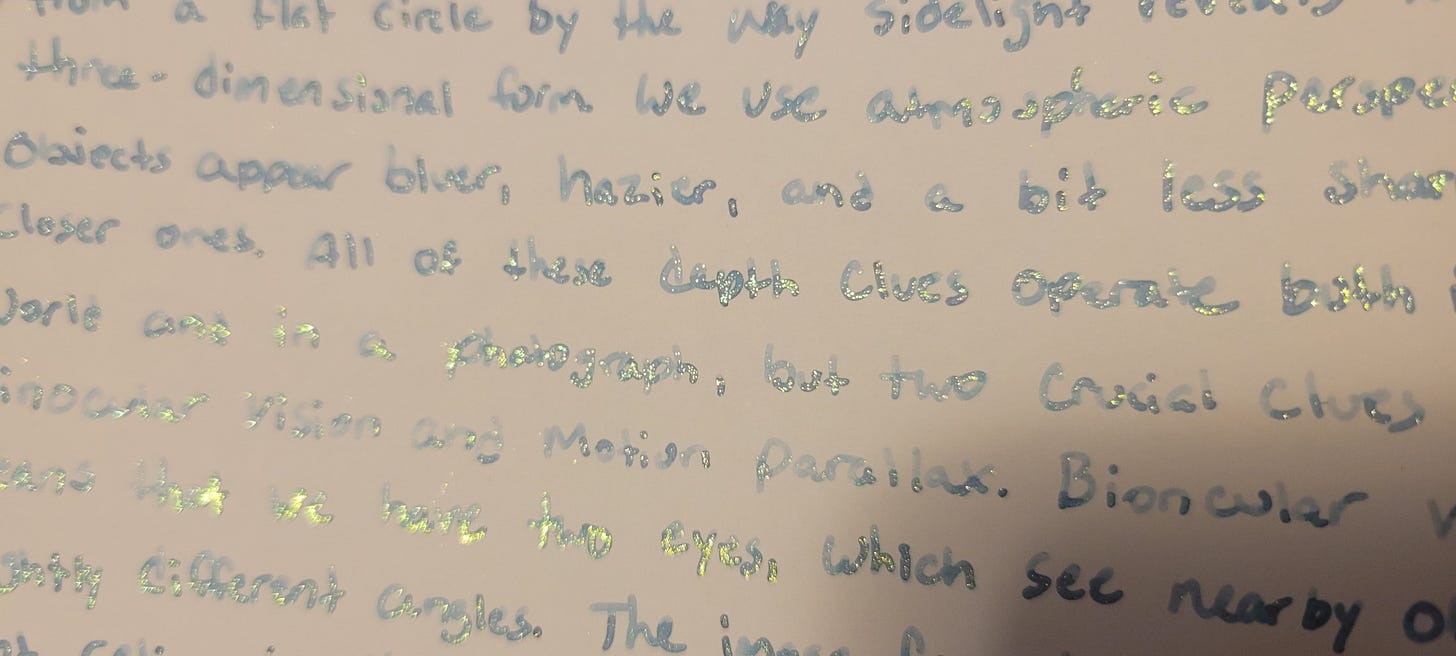 from a flat circle by the way sidelight reveals
three-dimensional form We use atmospheric perspe
Objects appear bluer, hazier, and a bit less shar
Closer ones. All of these depth Clues operate both
World and in a photograph, but two Crucial Clues
inocular Vision and Motion parallax. Bioncular v
eans that we have two eyes, which see nearby ob
ghtly different angles. The image